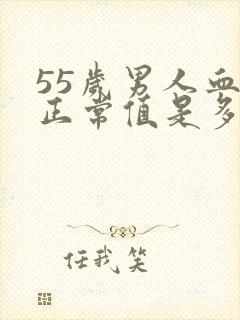 55岁男人血
正常值是多
任我笑